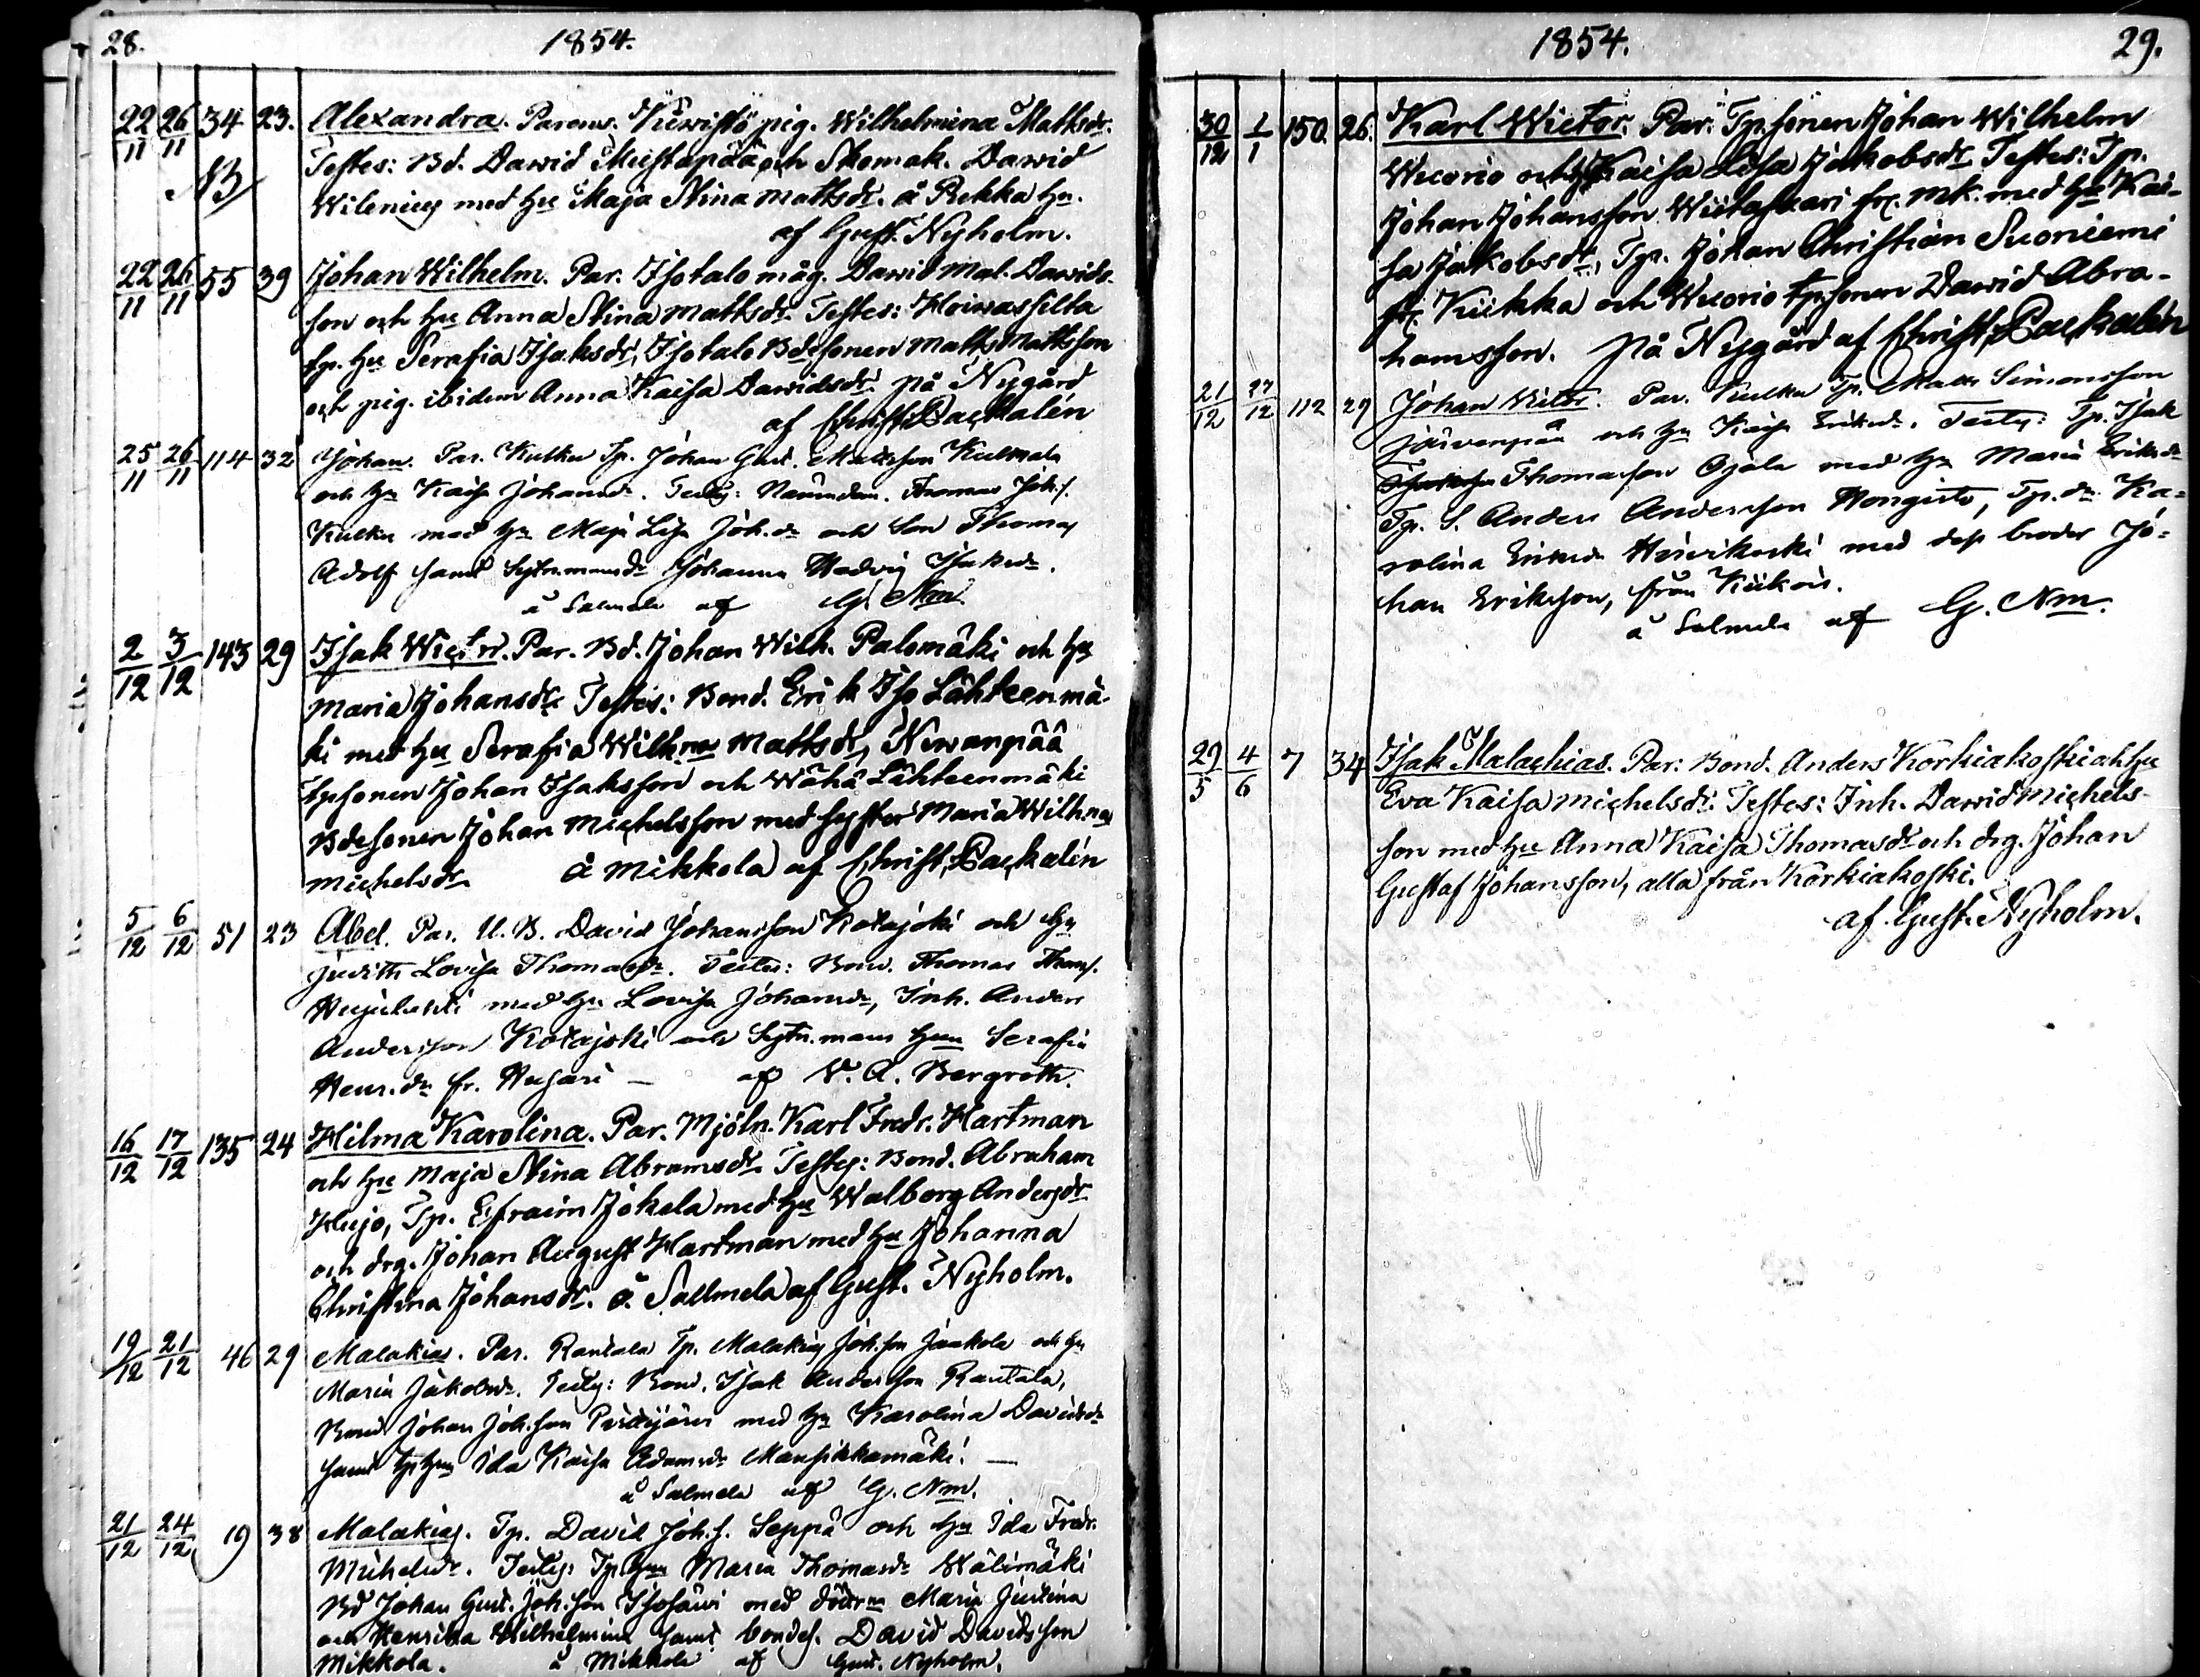 28. 1854.
22/11 26/11 34 23. Alexandra. Parens. Kiwistö pig. Wilhelmina Mattsdr.
NB Testes: Bd. Dawid Mustapää och Skomak. Dawid
Wilenius med hu Maja Stina Mattsdr. å Pekka hn.
af Gust. Nyholm.
22/11 26/11 55 39 Johan Wilhelm. Par. Isotalo måg. Dawid Mat. Dawids-
son och hu Anna Stina Mattsdr. Testes: Hoiwassilta
tp. hu Serafia Isaksdr, Isotalo Bdesonen Matts Mattsson
och pig. ibidem Anna Kaisa Dawidsdr. på Nygård
af Christ. Packalén
25/11 26/11 114 32 Johan. Par. Kulku Tp. Johan Gust. Mattsson Kulmala
och hu Kaisa Johansdr. Testes: Nämndem. Thomas Joh.s.
Kulku med hu Maja Lisa Joh.dr och Son Thomas
Adolf samt Sytn.mansdr Johanna Hedvig Isaksdr.
å Salmela af G. Nm.
2/12 3/12 143 29 Isak Wictor. Par. Bd. Johan Wilh. Palomäki och hu
Maria Johansdr. Testes: Bond. Erik Iso Lähteenmä-
ki med hu Serafia Wilhna Mattsdr, Newanpää
tpsonen Johan Isaksson och Wähä Lähteenmäki
Bdesonen Johan Michelsson med syster Maria Wilhna
Michelsdr. å Mikkola af Christ. Packalén
5/12 6/12 51 23 Abel. Par. U.B. David Johansson Kotajoki och hu
Judith Lovisa Thomasdr. Testes: Bond. Thomas Thoms.
med hu Lovisa Johansdr, Inh. Anders
Andersson Kotajoki och Sytn.mans hun Serafia
Henr.dr fr. Huhjari — af V. A. Bergroth.
16/12 17/12 135 24 Hilma Karolina. Par. Mjöln. Karl Fredr. Hartman
och hu Maja Stina Abramsdr. Testes: Bond. Abraham
Hujo, Tp. Efraim Jokela med hu Walborg Andersdr
och drg. Johan August Hartman med hu Johanna
Christina Johansdr. å Sallmela af Gust. Nyholm.
19/12 21/12 46 29 Malakias. Par. Rantala Tp. Malakias Joh.son Jaakola och hu
Maria Jakobsdr. Testes: Bond. Isak Andersson Rantala,
Bond Johan Joh.son Peräjärvi med hu Karolina Davidsdr
samt tp.hun Ida Kaisa Adamsdr Mansikkamäki. —
å Salmela af G. Nm.
21/12 24/12 19 38 Malakias. Tp. David Joh.s. Seppä och hu Ida Fredr.
Michelsdr. Testes: Tp.hun Maria Thomasdr Wälimäki
Bd Johan Gust. Joh.son Isosaari med döttrna Maria Justina
och Henrika Wilhelmina samt bondes. David Davidsson
Mikkola. å Mikkola af Gust. Nyholm.
1854. 29.
30/12 1/1 150. 26. Karl Wictor. Par. Tp.sonen Johan Wilhelm
Wuorio och hu Kaisa Lisa Jakobsdr. Testes: Tp.
Johan Johansson Wiitasaari fr. Mk. med hu Kai-
sa Jakobsdr, Tp. Johan Christian Suoniemi
fr. Kiikka och Wuorio tpsonen Dawid Abra-
hamsson. på Nygård af Christ. Packalén
21/12 27/12 112 29 Johan Victor. Par. Kulku Tp. Matts Simonsson
Järvenpää och hu Kaisa Eriksdr. Testes: Tp. Isak
Thomasson Ojala med hu Maria Eriksdr
Tp. S. Anders Andersson Hongisto, Tp.dr Ka-
rolina Eriksdr med dess broder Jo-
han Eriksson, från Kiikois.
å Salmela af G. Nm.
29/5 4/6 7 34 Isak Malachias. Par: Bond. Anders Korkiakoski och hu
Eva Kaisa Michelsdr. Testes: Inh. Dawid Michels-
son med hu Anna Kaisa Thomasdr och drg. Johan
Gustaf Johansson, alla från Korkiakoski.
af Gust. Nyholm.